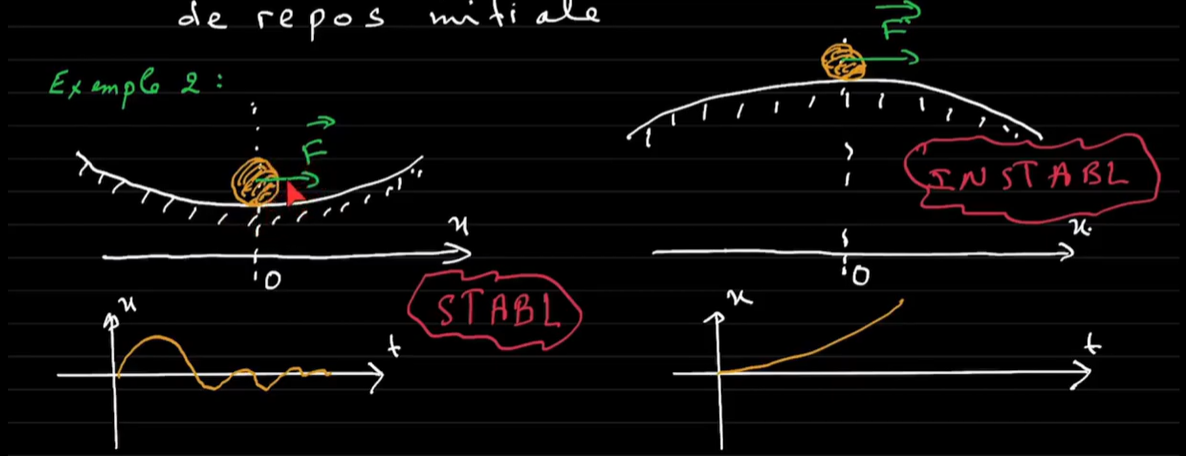 de repos initiale
F
Exemple 2 :
F
INSTABL
x
x
O
O
STABL
x
x
t
t